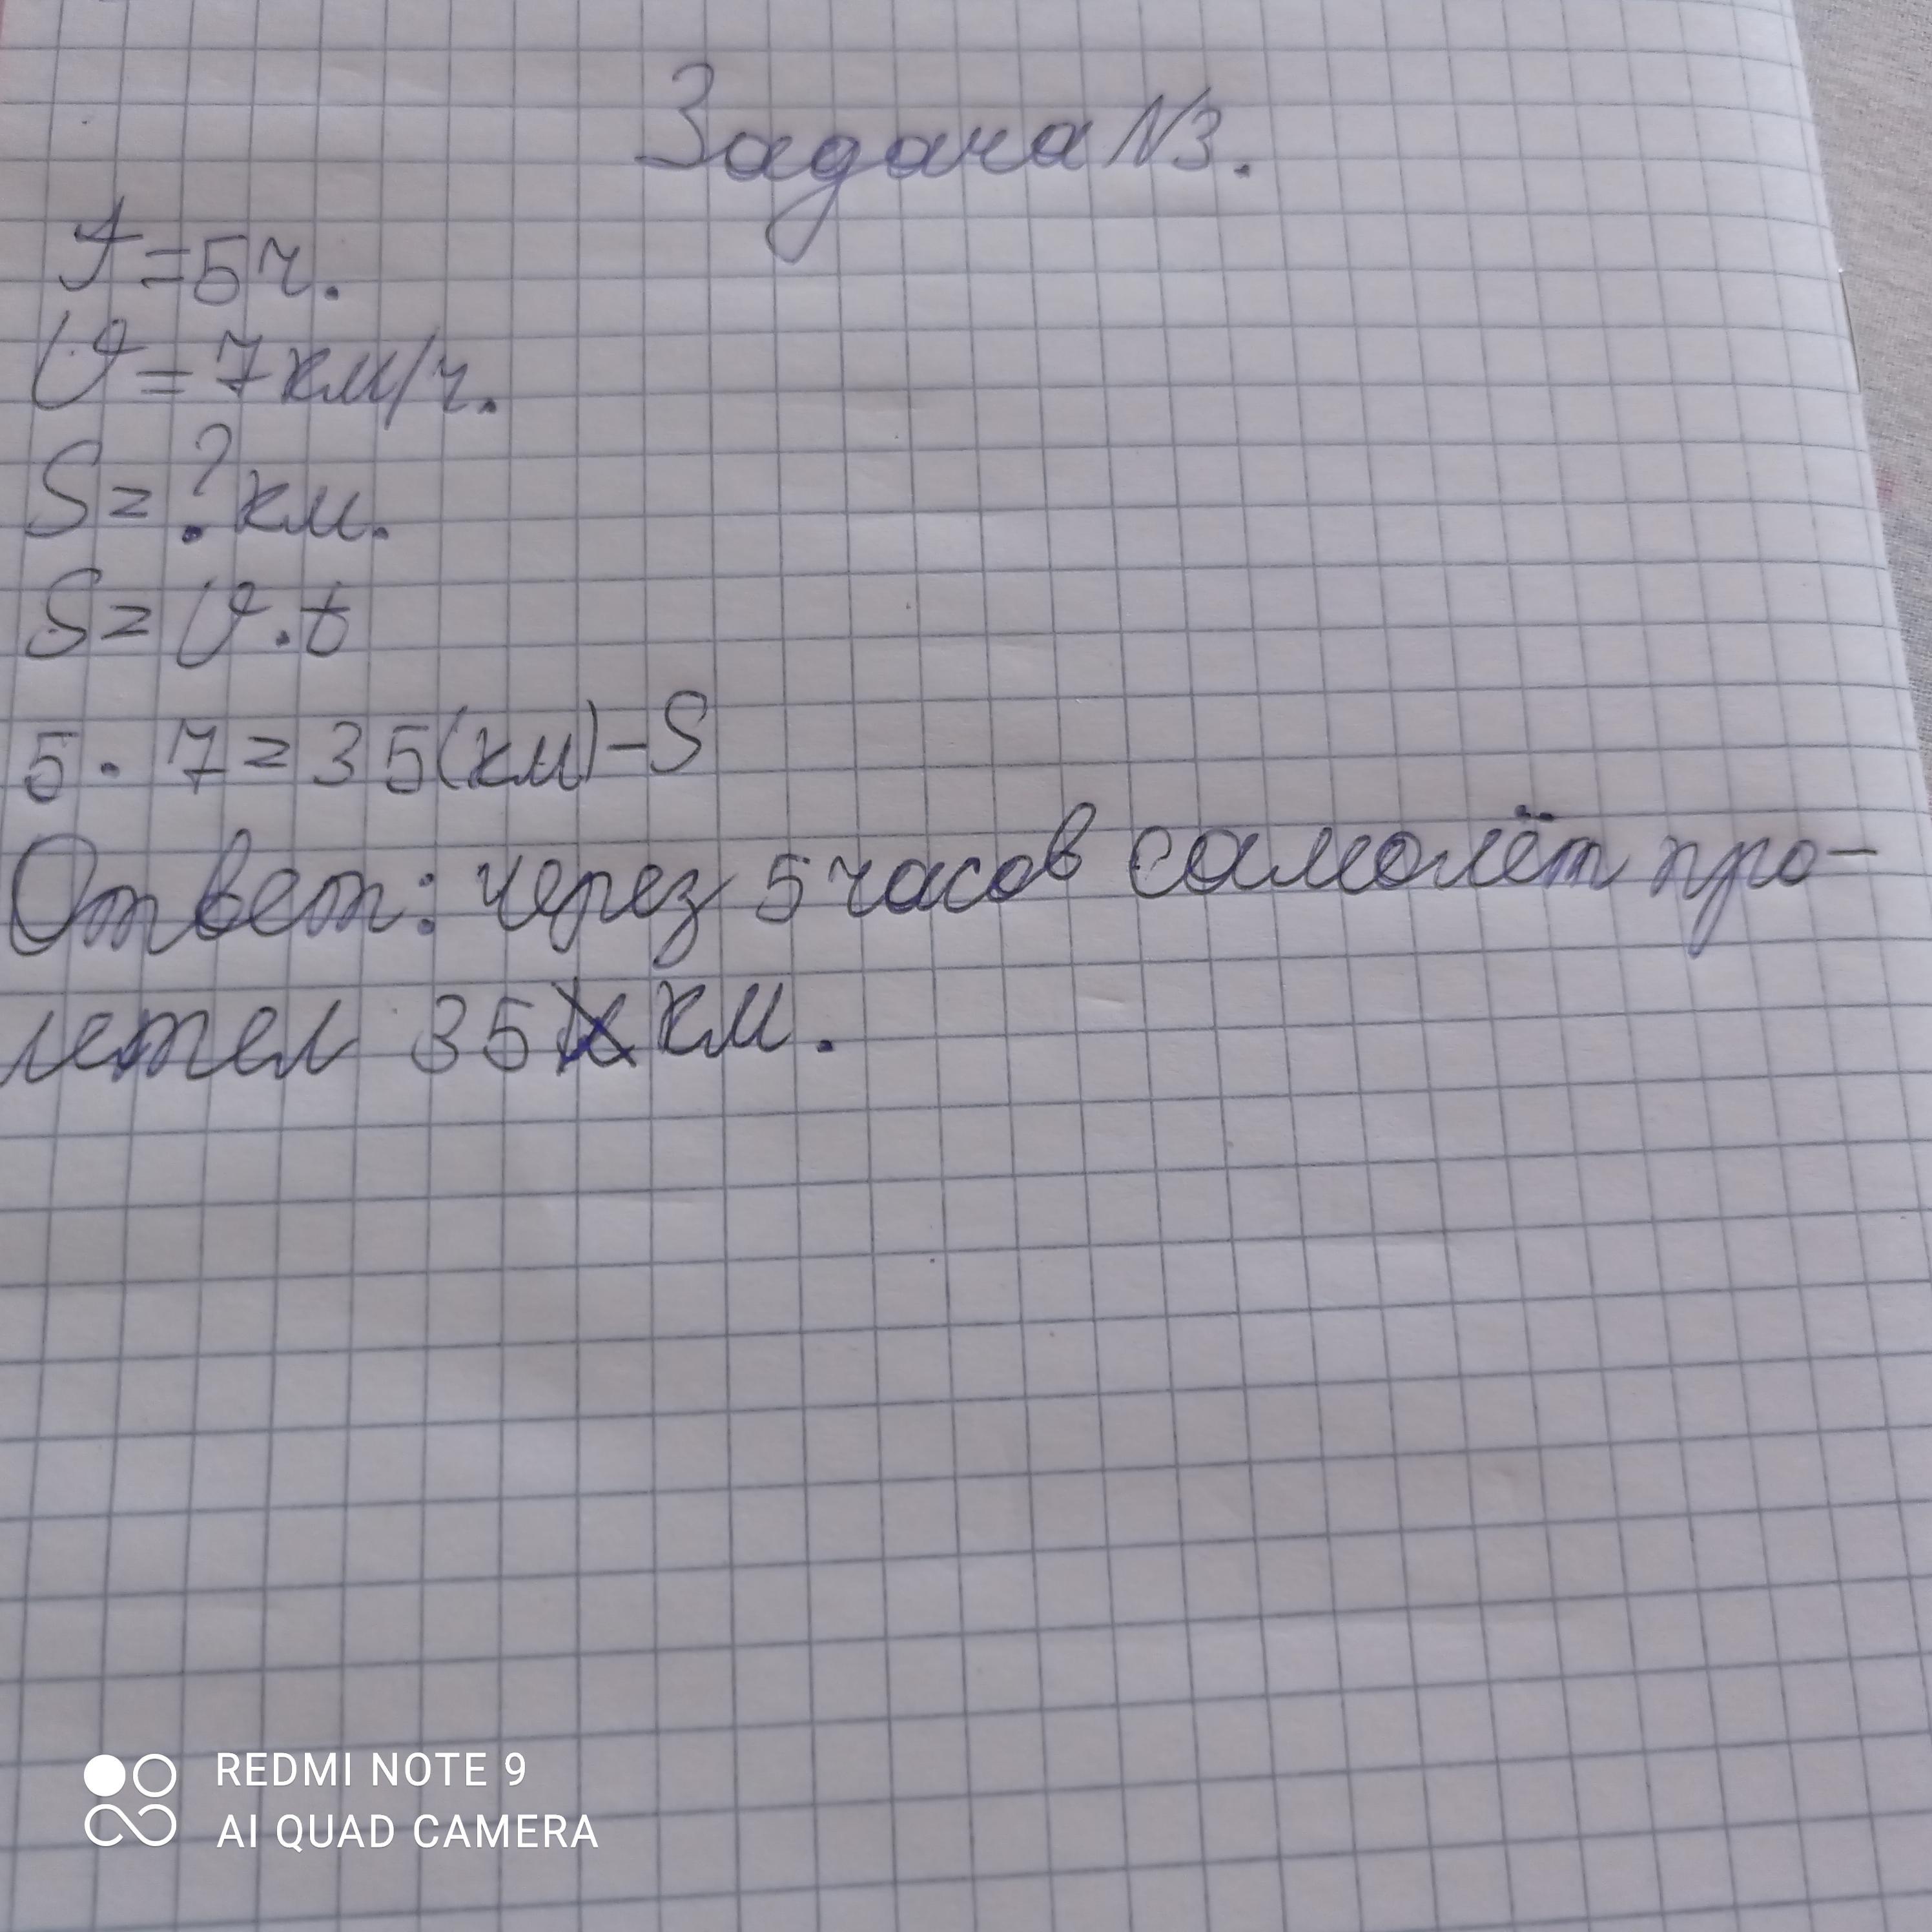 Задача N3.
t=5ч.
V=7км/ч.
S=?км.
S=V.t
5.7=35(км)-S
Ответ: через 5 часов самолёт про-
летел 35 км.
REDMI NOTE 9
AI QUAD CAMERA